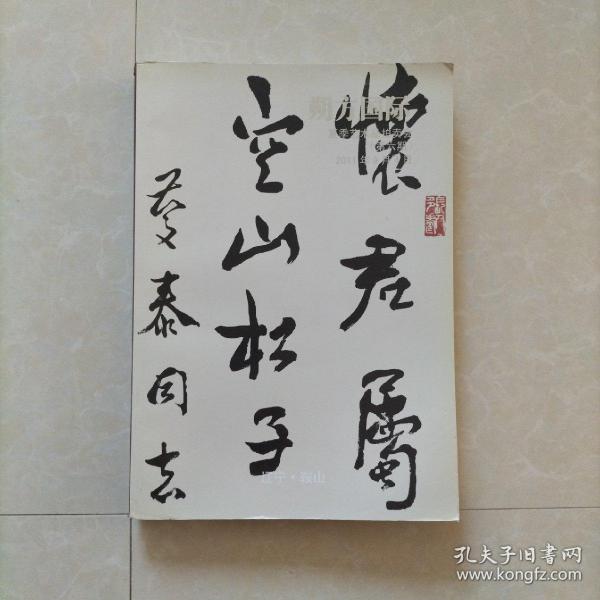 懷君屬
空山松子
慶泰同志
朔方国际
辽宁·鞍山
孔夫子旧书网
www.kongfz.com